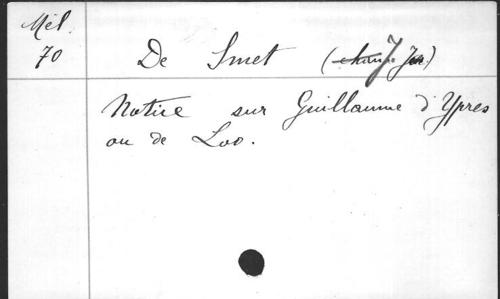 Mél.
70
De Smet (J. J.)
Notice sur Guillaume d'Ypres
ou de Loo.